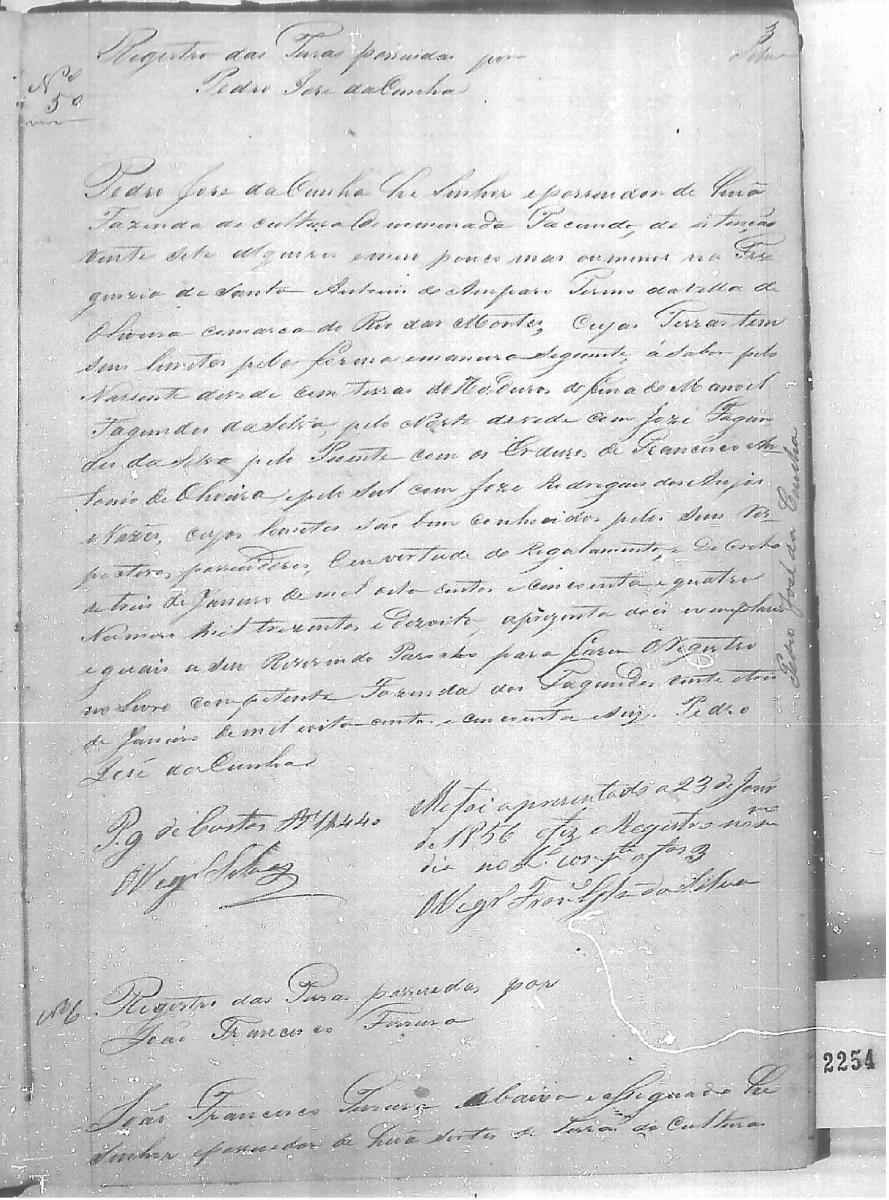 3
Silva
Nº
5º
Registro das Terras possuidas por
Pedro Jose da Cunha
Pedro Jose da Cunha he Senhor e possuidor de huã
Fazenda de cultura denominada Facundo, de estenção
vinte sete alqueires e meio pouco mais ou menos na Fre
guezia de Santo Antonio do Amparo Termo da Villa de
Oliveira comarca do Rio das Mortes, Cujas Terras tem
seus lemetes pela forma e maneira seguente, á saber pelo
Nassente devede com terras do finado Manoel
Fagundes da Silva, pelo Norte devede com Joze Fagun
des da Silva pelo Puente com os Erdeiros de Francisco An
tonio de Oliveira e pelo Sul com Joze Rodrigues dos Anjos
cujos lemetes são bem conhecidos pelos seus res
pectivos possuidores, E em vertude do Regulamento, e Decreto
de trinta de Janeiro de mil oito centos e cincoenta e quatro
Numero mil trezentos e dezoito, aprezenta dois exemplares
eguais a seu Reverendo Parocho para fazer o Registro
no Livro competente Fazenda dos Fagundes vinte e tres
de Janeiro de mil oito centos e cincoenta e seis. Pedro
José da Cunha
Pedro José da Cunha
P. g de Custas 1440
O Vigrº Silva
Me foi apresentado a 23 de Janrº
de 1856 e fiz o Registro no mmo
dia no Lº compte a fas 3
O Vigrº Franco da Silva
Nº 6
Registro das Terras possuidas por
João Francisco Ferreira
João Francisco Ferreira abaixo assignado he
Senhor e possuidor de huã sortes de Terras de Cultura
2254